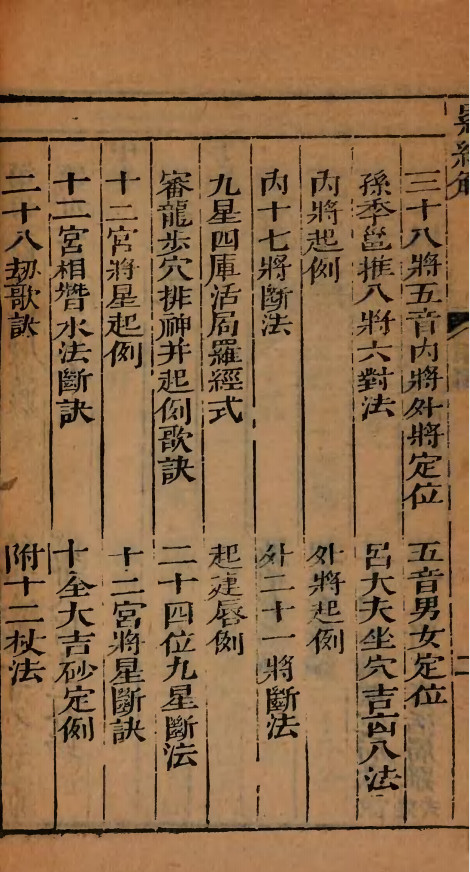 三十八將五音內將外將定位 五音男女定位
孫季邕推八將六對法 呂大夫坐穴吉凶八法
內將起例 外將起例
內十七將斷法 外二十一將斷法
九星四庫活局羅經式 起建唇例
審龍步穴排神并起例歌訣 二十四位九星斷法
十二宮將星起例 十二宮將星斷訣
十二宮相替水法斷訣 十全大吉砂定例
二十八刼歌訣 附十二杖法